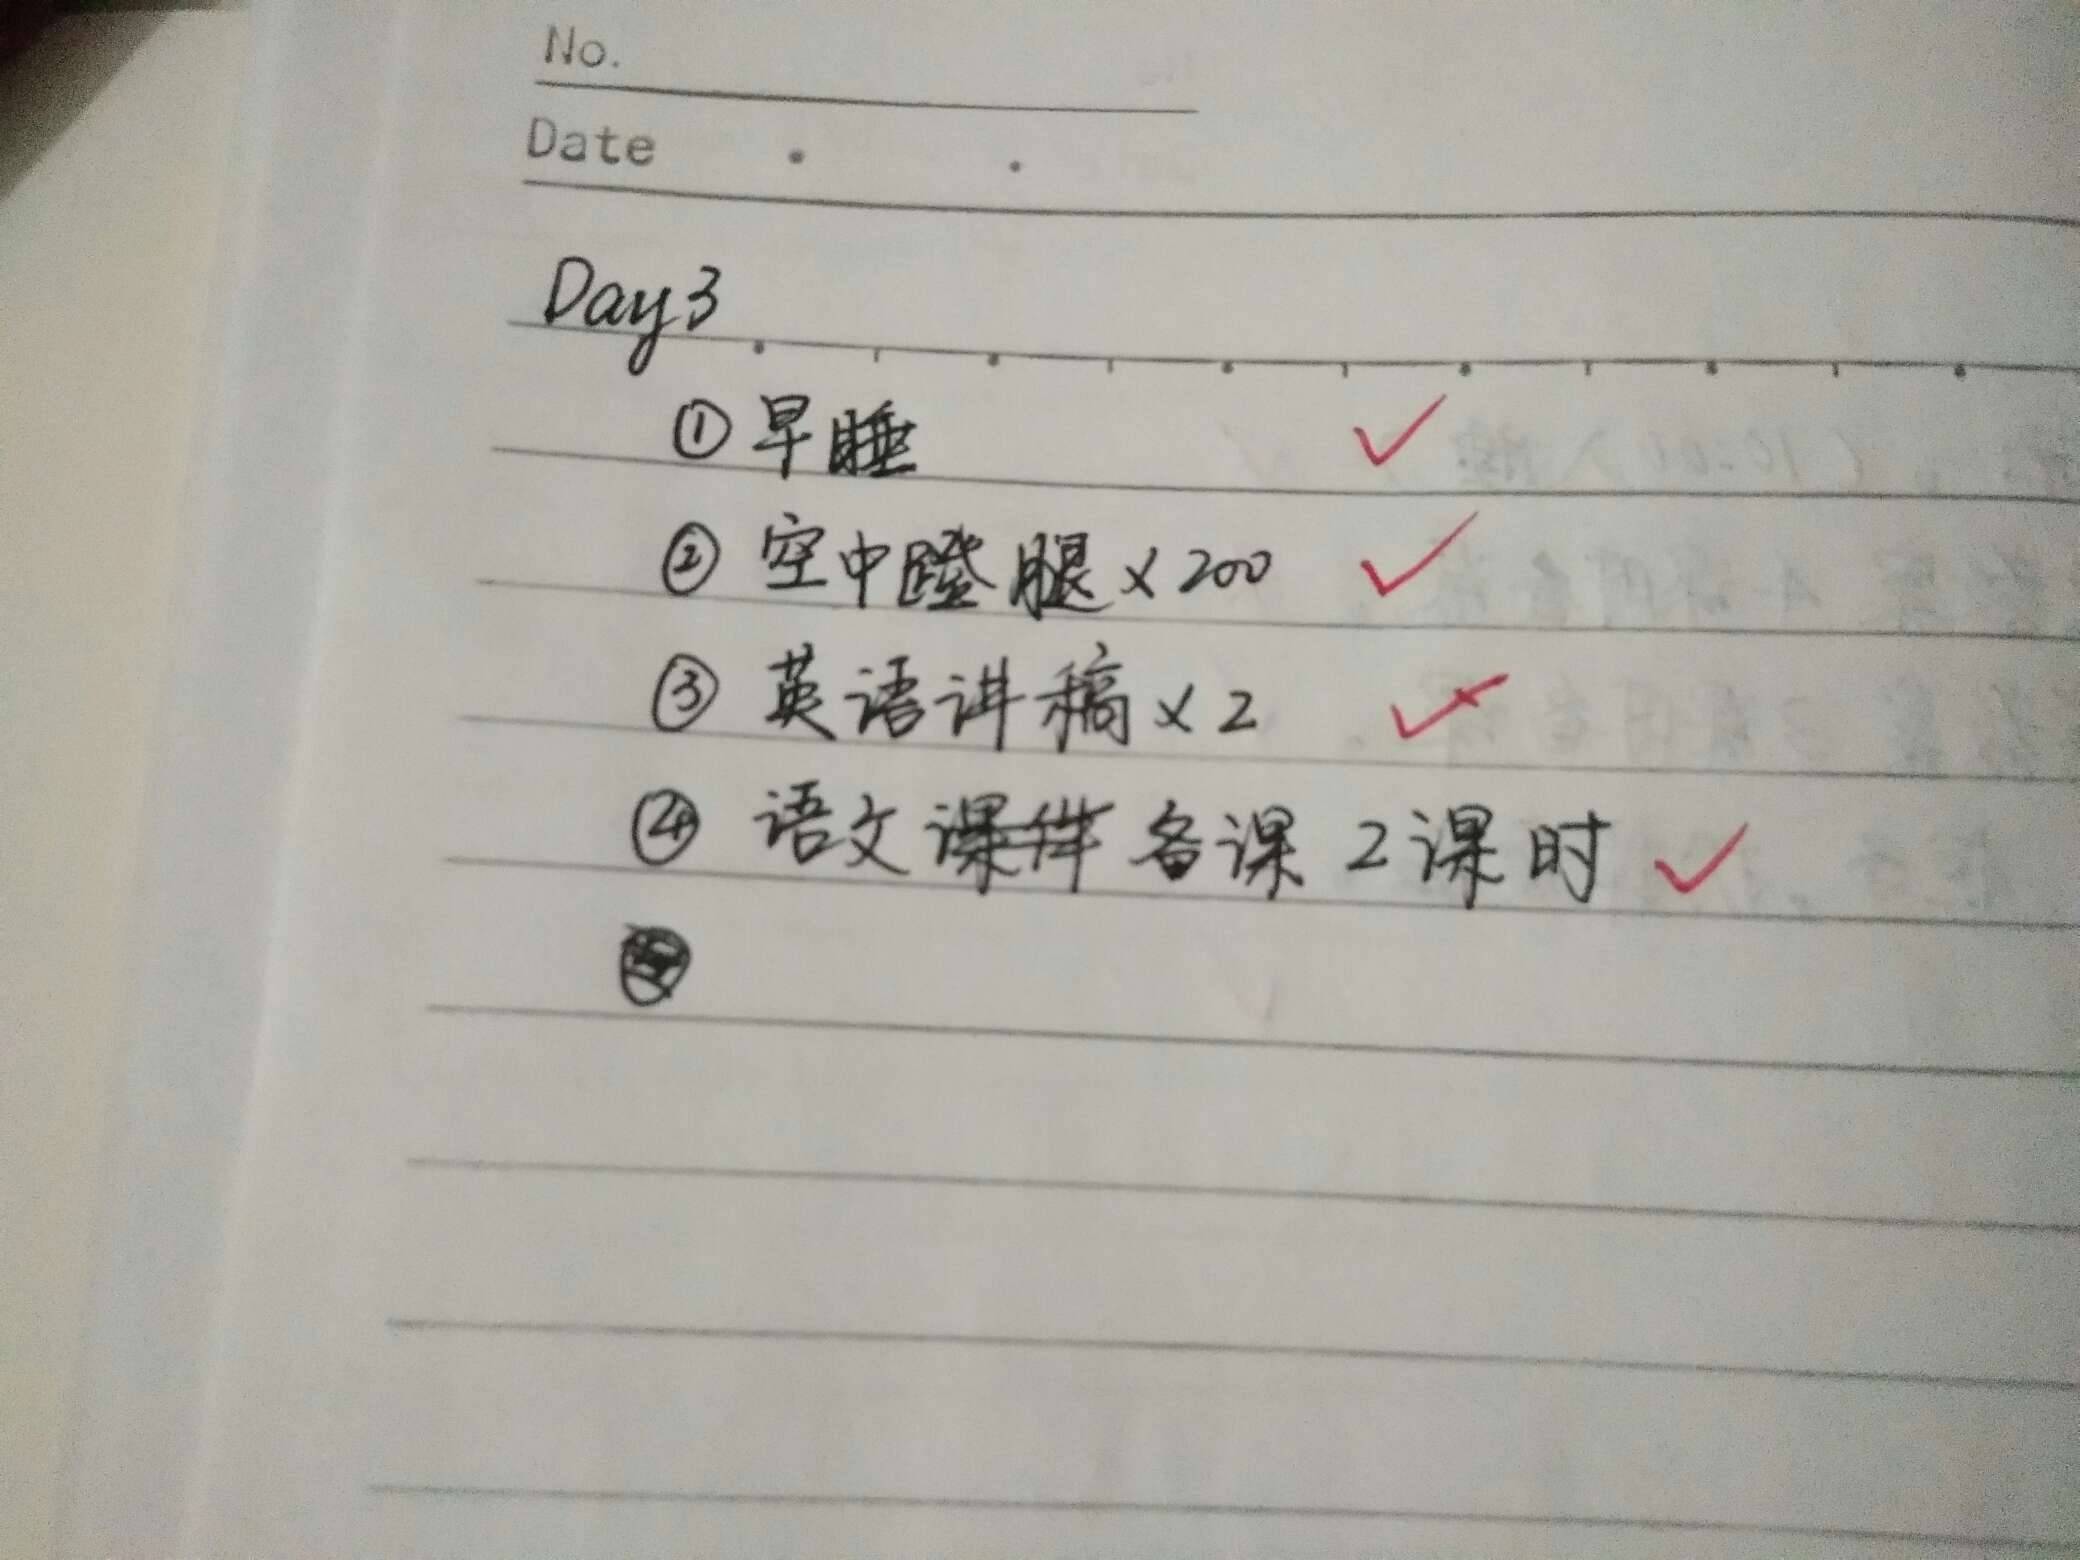 No.
Date . .
Day3
①早睡
②空中蹬腿×200
③英语讲稿×2
④语文课件备课2课时